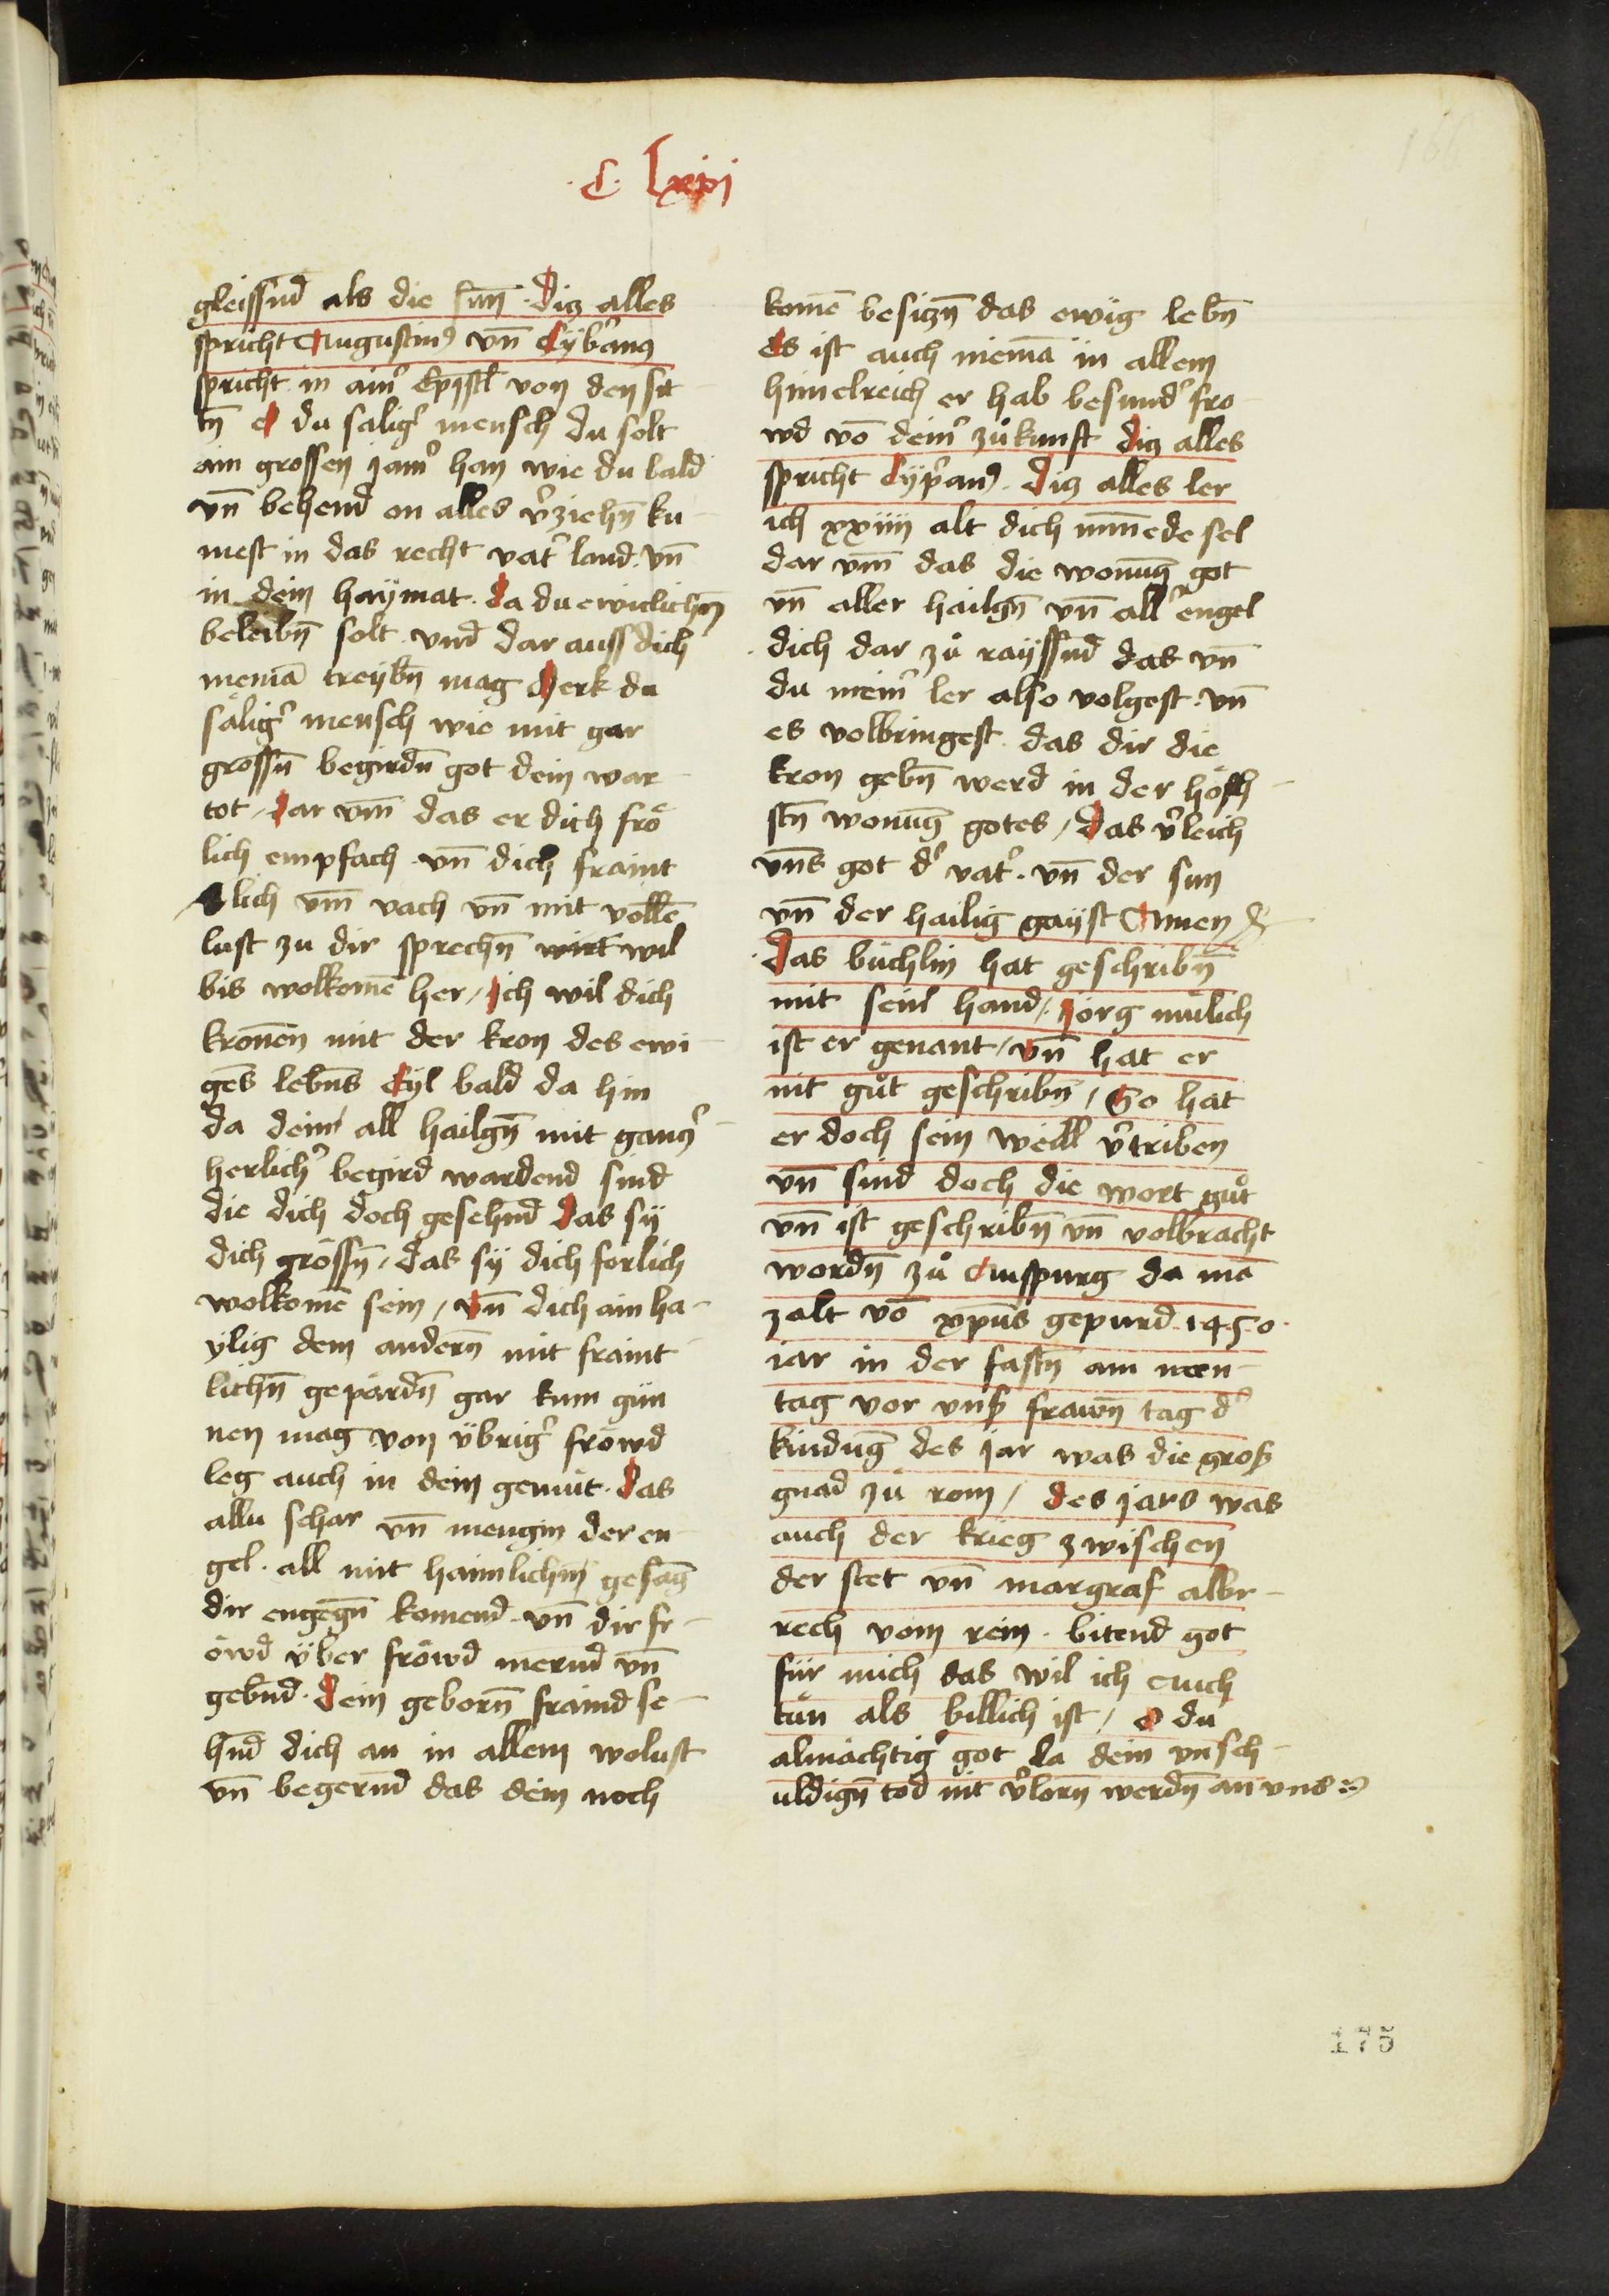 166
.C. lxvj
gleissnd als die sunn̄. Diz alles
spricht Augustinꝰ vn̄ Cÿb̓anꝰ
spricht in ain̓ Epistl̄ von den sit
tn̄ O du salig̓ mensch du solt
ain grossen jam̓ han wie du bald
vn̄ behend on alles v̓ziehn̄ ku-
mest in das recht vat̓ land. vn̄
in dein haÿmat. da du ewiclichn̄
beleibn̄ solt vnd dar auss dich
niemā treÿbn̄ mag Merk du
sälig̓ mensch wie mit gar
grossn̄ begirdn̄ got dein war-
tot / Dar vm̄ das er dich frö
lich empfach. vn̄ dich fraint
lich vm̄ vach vn̄ mit vollē
lust zu dir sprechn̄ wirt wil
bis wolkomē her / Ich wil dich
kronen̄ mit der kron des ewi-
ges lebn̄s Eyl bald da hin
da dein all hailgn̄ mit gancz̓
herlich̓ begird wardend sind
die dich doch gesehnd Das sÿ
dich grössn̄ / das sÿ dich forlich
wolkomē sein / Vn̄ dich ain ha-
ÿlig dem andern̄ mit fraint
lichn̄ gepärdn̄ gar kum gün
nen mag von übrig̓ fröwd
leg auch in dein gemüt. Das
allu schar vn̄ mengin der en-
gel. all mit haimlichm̄ gesang
dir engegn̄ komend. vn̄ dir fr-
öwd ÿber fröwd mernd vn̄
gebnd. Dein geborn̄ fraind se-
hnd dich an in allem wolust
vn̄ begernd das dein noch
komē besiczn̄ das ewig lebn̄
Es ist auch niemā in allem
himelreich er hab besund̓ fro
wd vō dein̓ zůkunft Diz alles
spricht Cÿp̓anꝰ. Diz alles ler
ich xxiiii alt dich minnede sel
dar vm̄ das die wonung got
vn̄ aller hailgn̄ vn̄ all̓ engel
dich dar zů raÿssnd das vn̄
du mein̓ ler also volgest. vn̄
es volbringest. das dir die
kron gebn̄ werd in der höch-
stn̄ wonung gotes / Das v̓leich
vn̄s got d̓ vat̓. vn̄ der sun
vn̄ der hailig gaÿst Amen
Das büchlin hat geschribn̄
mit seinl hand / Jörg mülich
ist er genant / Vn̄ hat er
nit gůt geschribn̄ / So hat
er doch sein weill v̓triben
vn̄ sind doch die wort gůt
vn̄ ist geschribn̄ vn̄ volbracht
wordn̄ zů Auspurg da mā
zalt vō xpūs gepurd. 1450.
jar in der fastn̄ am men-
tag vor vnß frawn̄ tag d̓
kindung des jar was die groß
gnad zů rom / des jars was
auch der krieg zwischen
der stet vn̄ margraf albr-
rech vom rein. bitend got
für mich das wil ich euch
tůn als billich ist / O du
almächtig̓ got la dein vnsch-
uldign̄ tod nit v̓lorn werdn̄ an vns
175